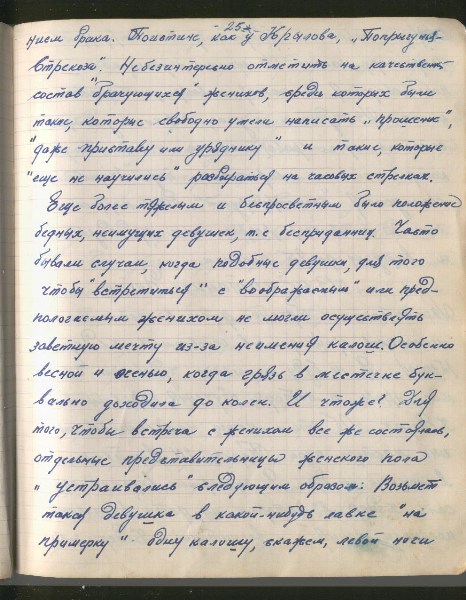 25*
нием брака. Поистине, как у Крылова, „Попрыгунья-
Стрекоза". Небезинтересно отметить на качествен
состав "брачующихся" женихов, среди которых были
такие, которые свободно умели написать „прошение",
"даже приставу или уряднику" и такие, которые
"еще не научились" разбираться на часовых стрелках.
Еще более тяжелым и беспросветным было положение
бедных, неимущих девушек, т.е бесприданниц. Часто
бывали случаи, когда подобные девушки, для того
чтобы "встретиться" с "воображаемым" или пред-
пологаемым женихом не могли осуществлять
заветную мечту из-за неимения калош. Особенно
весной и осенью, когда грязь в местечке бук-
вально доходила до колен. И что же? Для
того, чтобы встреча с женихом все же состоялась,
отдельные представительницы женского пола
"устраивались" следующим образом: Возьмет
такая девушка в какой-нибудь лавке "на
примерку" одну калошу, скажем, левой ноги